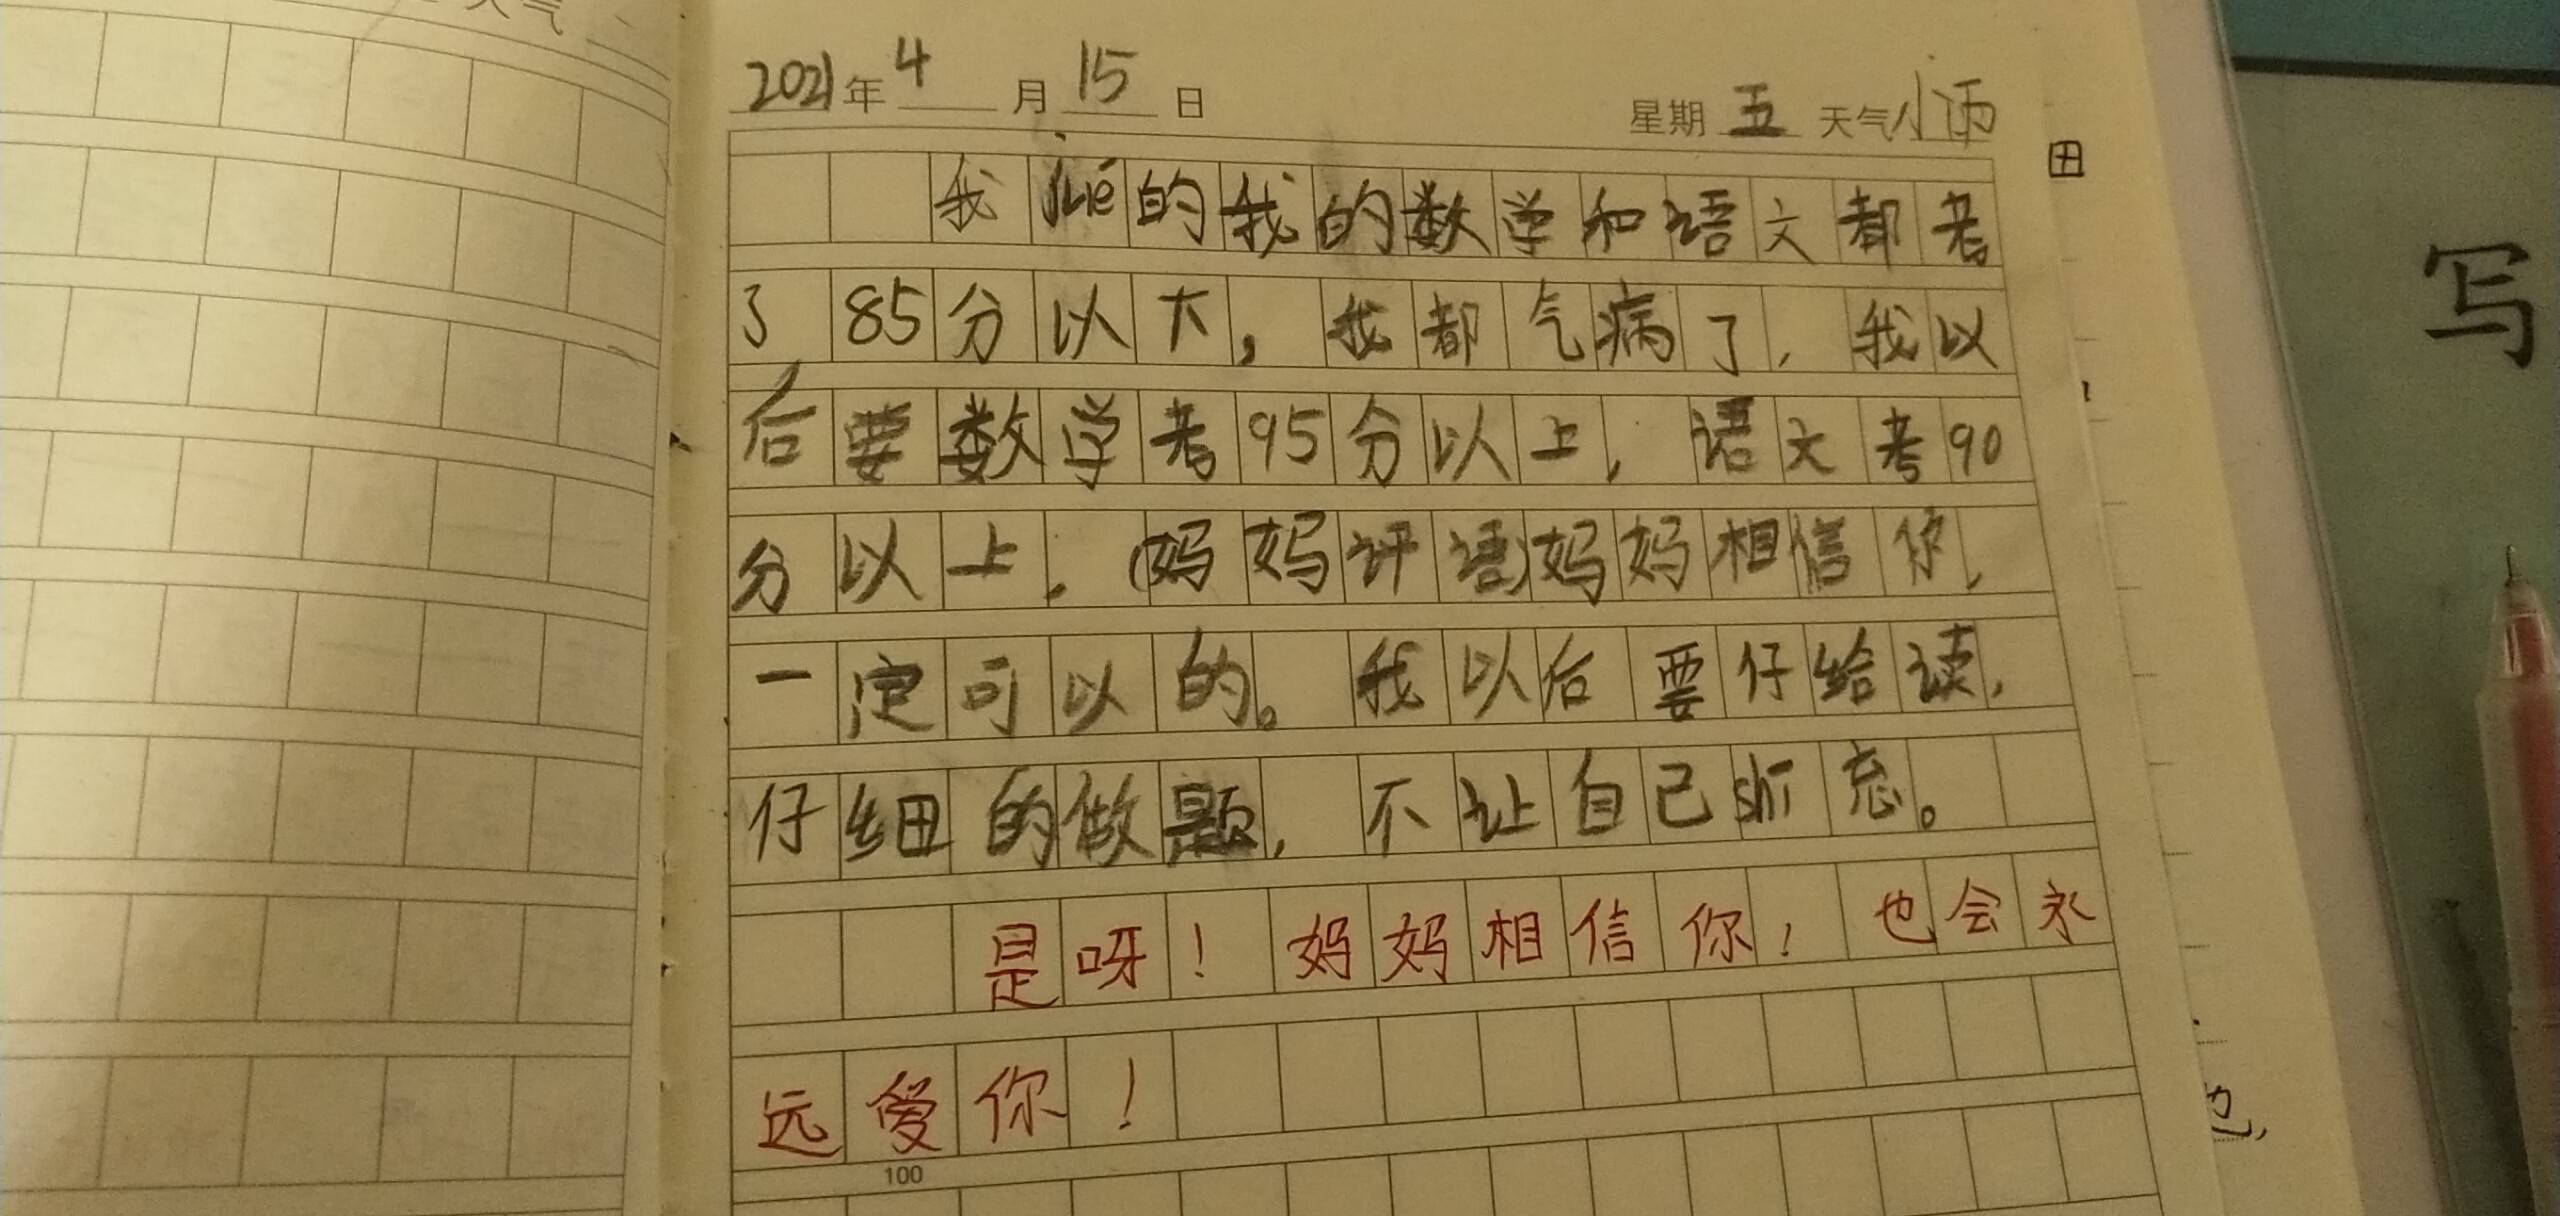 天气
2021年4月15日 星期五 天气小雨
我jué的我的数学和语文都考
了85分以下，我都气病了，我以
后要数学考95分以上，语文考90
分以上.(妈妈评语)妈妈相信你，
一定可以的。我以后要仔给读，
仔细的做题，不让自己shī忘。
是呀！妈妈相信你！也会永
远爱你！
100
田
写
也，